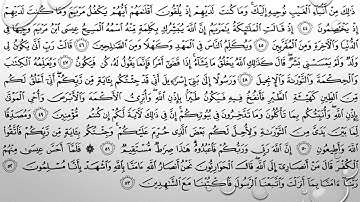 ذَٰلِكَ مِنْ أَنۢبَآءِ ٱلْغَيْبِ نُوحِيهِ إِلَيْكَ وَمَا كُنتَ لَدَيْهِمْ إِذْ يُلْقُونَ أَقْلَٰمَهُمْ أَيُّهُمْ يَكْفُلُ مَرْيَمَ وَمَا كُنتَ لَدَيْهِمْ
إِذْ يَخْتَصِمُونَ ٤٤ إِذْ قَالَتِ ٱلْمَلَٰٓئِكَةُ يَٰمَرْيَمُ إِنَّ ٱللَّهَ يُبَشِّرُكِ بِكَلِمَةٍ مِّنْهُ ٱسْمُهُ ٱلْمَسِيحُ عِيسَى ٱبْنُ مَرْيَمَ وَجِيهًا فِى
ٱلدُّنْيَا وَٱلْءَاخِرَةِ وَمِنَ ٱلْمُقَرَّبِينَ ٤٥ وَيُكَلِّمُ ٱلنَّاسَ فِى ٱلْمَهْدِ وَكَهْلًا وَمِنَ ٱلصَّٰلِحِينَ ٤٦ قَالَتْ رَبِّ أَنَّىٰ يَكُونُ لِى
وَلَدٌ وَلَمْ يَمْسَسْنِى بَشَرٌ قَالَ كَذَٰلِكِ ٱللَّهُ يَخْلُقُ مَا يَشَآءُ إِذَا قَضَىٰٓ أَمْرًا فَإِنَّمَا يَقُولُ لَهُۥ كُن فَيَكُونُ ٤٧ وَيُعَلِّمُهُ ٱلْكِتَٰبَ
وَٱلْحِكْمَةَ وَٱلتَّوْرَىٰةَ وَٱلْإِنجِيلَ ٤٨ وَرَسُولًا إِلَىٰ بَنِىٓ إِسْرَٰٓءِيلَ أَنِّى قَدْ جِئْتُكُم بِـَٔايَةٍ مِّن رَّبِّكُمْ أَنِّىٓ أَخْلُقُ لَكُم
مِّنَ ٱلطِّينِ كَهَيْـَٔةِ ٱلطَّيْرِ فَأَنفُخُ فِيهِ فَيَكُونُ طَيْرًۢا بِإِذْنِ ٱللَّهِ وَأُبْرِئُ ٱلْأَكْمَهَ وَٱلْأَبْرَصَ وَأُحْىِ ٱلْمَوْتَىٰ
بِإِذْنِ ٱللَّهِ وَأُنَبِّئُكُم بِمَا تَأْكُلُونَ وَمَا تَدَّخِرُونَ فِى بُيُوتِكُمْ إِنَّ فِى ذَٰلِكَ لَـَٔايَةً لَّكُمْ إِن كُنتُم مُّؤْمِنِينَ ٤٩ وَمُصَدِّقًا
لِّمَا بَيْنَ يَدَىَّ مِنَ ٱلتَّوْرَىٰةِ وَلِأُحِلَّ لَكُم بَعْضَ ٱلَّذِى حُرِّمَ عَلَيْكُمْ وَجِئْتُكُم بِـَٔايَةٍ مِّن رَّبِّكُمْ فَٱتَّقُوا۟ ٱللَّهَ
وَأَطِيعُونِ ٥٠ إِنَّ ٱللَّهَ رَبِّى وَرَبُّكُمْ فَٱعْبُدُوهُ هَٰذَا صِرَٰطٌ مُّسْتَقِيمٌ ٥١ ۞ فَلَمَّآ أَحَسَّ عِيسَىٰ مِنْهُمُ
ٱلْكُفْرَ قَالَ مَنْ أَنصَارِىٓ إِلَى ٱللَّهِ قَالَ ٱلْحَوَارِيُّونَ نَحْنُ أَنصَارُ ٱللَّهِ ءَامَنَّا بِٱللَّهِ وَٱشْهَدْ بِأَنَّا مُسْلِمُونَ ٥٢
رَبَّنَآ ءَامَنَّا بِمَآ أَنزَلْتَ وَٱتَّبَعْنَا ٱلرَّسُولَ فَٱكْتُبْنَا مَعَ ٱلشَّٰهِدِينَ ٥٣